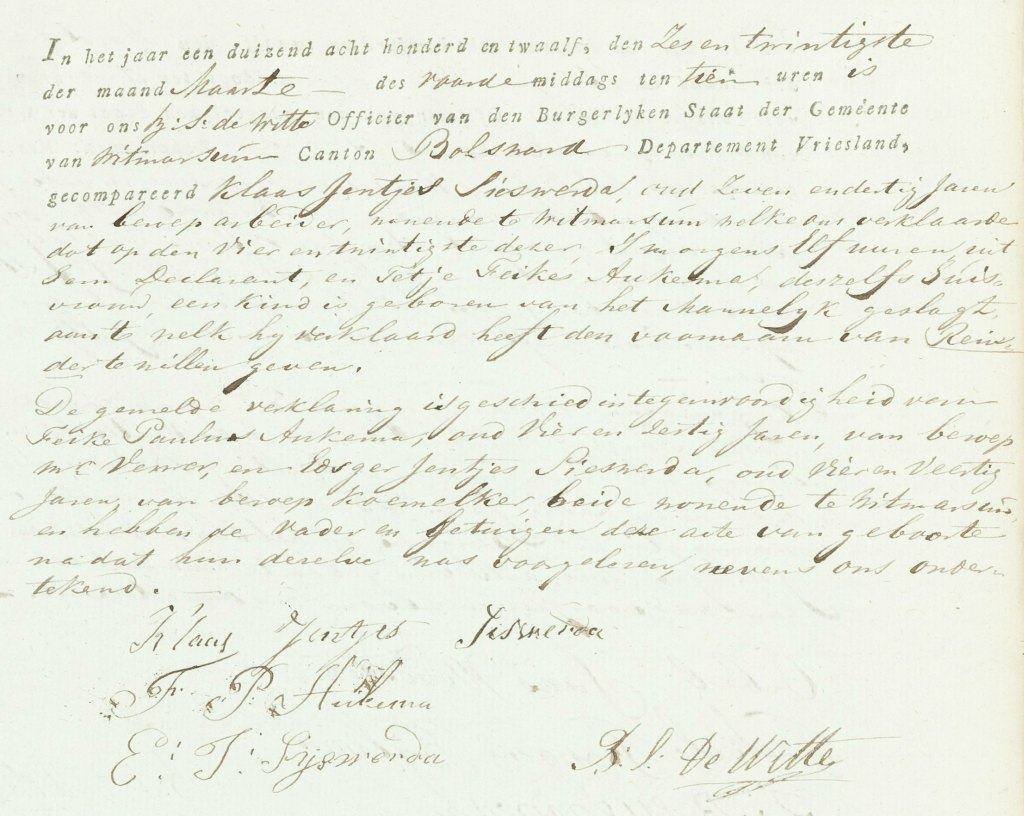 In het jaar een duizend acht honderd en twaalf, den Zes en twintigste
der maand Maarte — des voorde middags ten tien uren is
voor ons S: de Witte Officier van den Burgerlyken Staat der Gemeente
van Witmarsum Canton Bolsward Departement Vriesland,
gecompareerd Klaas Jentjes Sieswerda, oud Zeven endertig Jaren
van beroep arbeider, wonende te Witmarsum welke ons verklaarde
dat op den Vier en twintigste dezer, S morgens Elf uuren, uit
hem Declarant, en Tetje Feikes Aukema, deszelfs Huis-
vrouw een kind is geboren van het Mannelyk geslagt,
aan't welk hy verklaard heeft den voornaam van Rein-
der te willen geven.
De gemelde verklaring is geschied in tegenwoordigheid van
Feike Paulus Aukema, oud Vier en Zestig Jaren, van beroep
Verwer, en Edsger Jentjes Sieswerda, oud Vier en Veertig
Jaren, van beroep Koemelker, beide wonende te Witmarsum,
en hebben de Vader en Getuigen deze acte van geboorte
na dat hun dezelve was voorgelezen, nevens ons onder-
tekend. —
Klaas Jentjes Siswerda
F. P. Aukema
E: J: Syswerda
S: De Witte